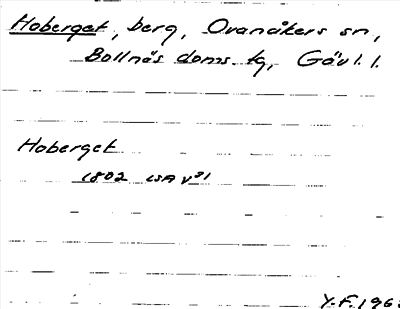 Hoberget, berg, Ovanåkers sn,
Bollnäs doms. tg, Gävl. l.
Hoberget
1802 LSA V31
Y.F. 196